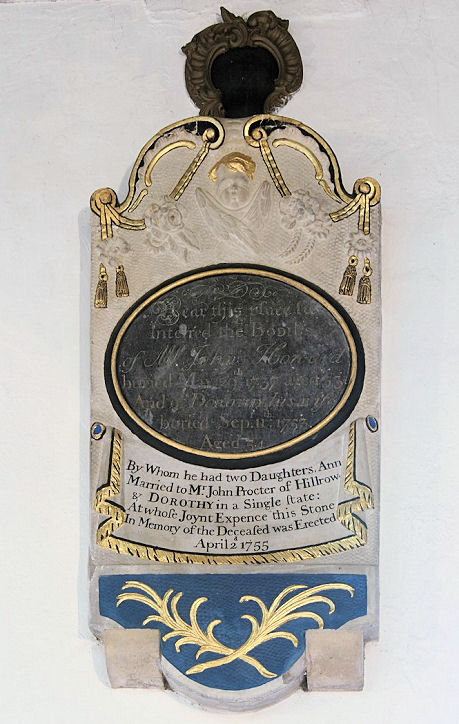 Near this place lie
Interred the Bodies
of Mr. John Howard
buried
And Dorothy his wife
buried Sep. 11th, 1753.
Aged
By Whom he had two Daughters. Ann
Married to Mr John Procter of Hillrow.
& DOROTHY in a Single ſtate:
At whoſe Joynt Expence this Stone
In Memory of the Deceaſed was Erected
April 2d 1755